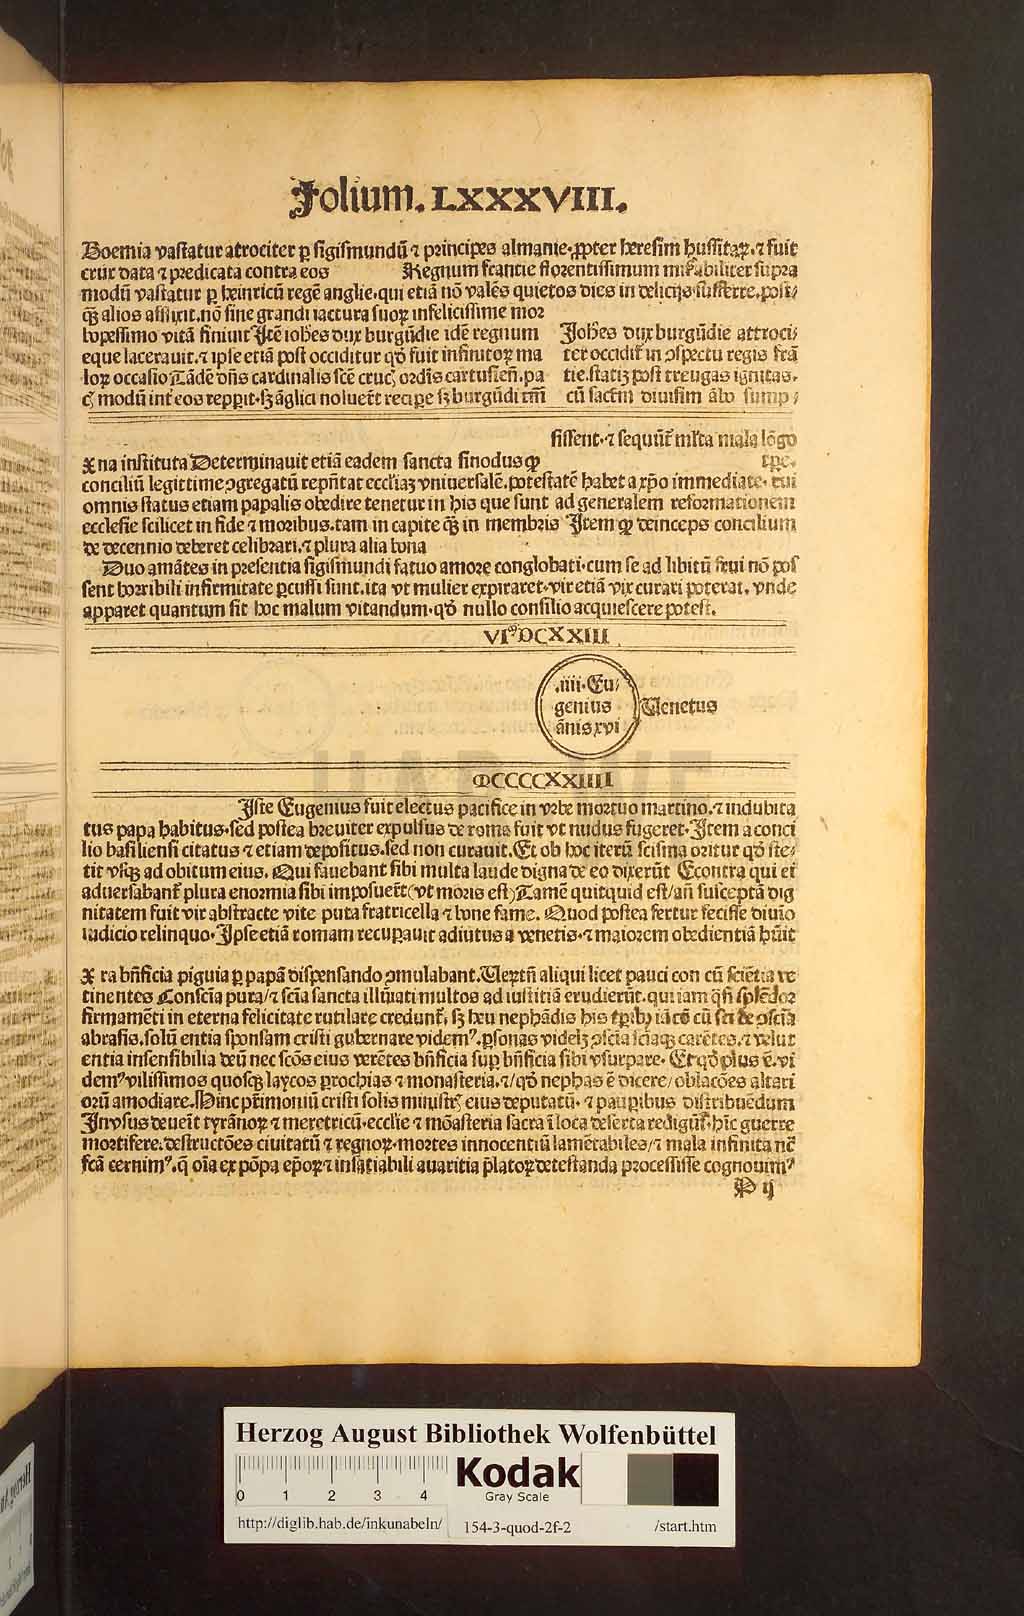 Folium. LXXXVIII.
Boemia vastatur atrociter ꝑ sigismundū ⁊ principes almanie. ꝓpter heresim hussitaꝝ. ⁊ fuit
crux data ⁊ predicata contra eos Regnum francie florentissimum mirabiliter supra
modū vastatur ꝑ heinricū regē anglie. qui etiā nō valēs quietos dies in delicijs sufferre. post/
qȝ alios afflixit. nō sine grandi iactura suoꝝ infelicissime mor
bo pessimo vitā finiuit Itē ioh̄es dux burgūdie idē regnum
eque lacerauit. ⁊ ipse etiā post occiditur qđ fuit infinitoꝝ ma
loꝝ occasio Tādē dn̄s cardinalis scē cruc̄ ordīs cartusien̄. pa
c̄ modū int̄ eos repperit. sȝ āglici noluer̄t recipe sȝ burgūdi tm̄
Joh̄es dux burgūdie attroci/
ter occidit̄ in ꝯspectu regis frā
tie. statiȝ post treugas ignitas.
cū sactm̄ diuisim ābo sump/
sissent. ⁊ sequūt̄ ml̄ta mala lōgo
tꝑe.
xna instituta Determinauit etiā eadem sancta sinodus ꝙ
conciliū legittime ꝯgregatū repn̄tat eccl̄iaȝ vniuersalē. potestatē habet a xp̄o immediate. cui
omnis status etiam papalis obedire tenetur in his que sunt ad generalem reformationem
ecclesie scilicet in fide ⁊ moribus. tam in capite qȝ in membris Item ꝙ deinceps concilium
de decennio deberet celibrari. ⁊ plura alia bona
Duo amātes in presentia sigismundi fatuo amore conglobati. cum se ad libitū frui nō pos
sent horribili infirmitate ꝑcussi sunt. ita vt mulier expiraret. vir etiā vix curari poterat. vnde
apparet quantum sit hoc malum vitandum. qđ nullo consilio acquiescere potest.
VIꝰDCXXIII
.iiii. Eu/
genius
ānis xvi
Venetus
MCCCCXXIIII
Iste Eugenius fuit electus pacifice in vrbe mortuo martino. ⁊ indubita
tus papa habitus. sed postea breuiter expulsus de roma fuit vt nudus fugeret. Item a conci
lio basiliensi citatus ⁊ etiam depositus. sed non curauit. Et ob hoc iterū scisma oritur qđ ste/
tit vsqȝ ad obitum eius. Qui fauebant sibi multa laude digna de eo dixerūt Econtra qui ei
aduersabant̄ plura enormia sibi imposuer̄t (vt moris est) Tamē quitquid est/ an̄ susceptā dig
nitatem fuit vir abstracte vite puta fratricella ⁊ bone fame. Quod postea fertur fecisse diuīo
iudicio relinquo. Ipse etiā romam recuꝑauit adiutus a venetis. ⁊ maiorem obedientiā h̄uit
x ra bn̄ficia pīguia ꝑ papā dispensando ꝯmulabant. Veꝝtn̄ aliqui licet pauci con cū sciētia re
tinentes Consciā pura/ ⁊ sciā sancta illūiati multos ad iustitiā erudierūt. qui iam qͣsi splēdor
firmamēti in eterna felicitate rutilare credunt̄. sȝ heu nephādis his tꝑibȝ iā cū sci de ꝯsciā
abrasis. solū entia sponsam cristi gubernare videmꝰ. ꝑsonas videlȝ ꝯsciā sciaqȝ carētes. ⁊ velut
entia insensibilia deū nec scōs eius verētes bn̄ficia suꝑ bn̄ficia sibi vsurpare. Et qđ plus ē. vi
demꝰ vilissimos quosqȝ laycos ꝑrochias ⁊ monasteria. ⁊/ qđ nephas ē dicere/ oblacōes altari
orū amodiare. Hinc pr̄imoniū cristi solis ministr̄ eius deputatū. ⁊ pauꝑibus distribuēdum
In vsus deuēit tyrānoꝝ ⁊ meretricū. eccl̄ie ⁊ mōasteria sacra ī loca deserta redigūt̄. hīc guerre
mortifere. destructōes ciuitatū ⁊ regnoꝝ. mortes innocentiū lamētabiles/ ⁊ mala infinita nē
fcā cernimꝰ. q̄ oīa ex pōpa ep̄oꝝ ⁊ insatiabili auaritia p̄latoꝝ detestanda processisse cognouimꝰ
P ij
Herzog August Bibliothek Wolfenbüttel
0 1 2 3 4
Kodak
Gray Scale
http://diglib.hab.de/inkunabeln/ 154-3-quod-2f-2 /start.htm